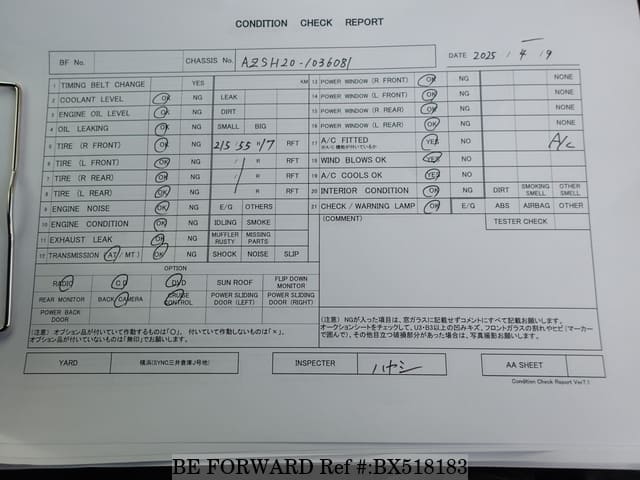 CONDITION CHECK REPORT
BF No. CHASSIS No. AZSH20-1036081 DATE 2025 / 4 / 9
1 TIMING BELT CHANGE YES KM 13 POWER WINDOW (R FRONT) OK NG NONE
2 COOLANT LEVEL OK NG LEAK 14 POWER WINDOW (L FRONT) OK NG NONE
3 ENGINE OIL LEVEL OK NG DIRT 15 POWER WINDOW (R REAR) OK NG NONE
4 OIL LEAKING OK NG SMALL BIG 16 POWER WINDOW (L REAR) OK NG NONE
5 TIRE (R FRONT) OK NG 215/55R/17 RFT 17 A/C FITTED YES NO A/C
6 TIRE (L FRONT) OK NG / R RFT 18 WIND BLOWS OK YES NO
7 TIRE (R REAR) OK NG / R RFT 19 A/C COOLS OK YES NO
8 TIRE (L REAR) OK NG / R RFT 20 INTERIOR CONDITION OK NG DIRT SMOKING SMELL OTHER SMELL
9 ENGINE NOISE OK NG E/G OTHERS 21 CHECK / WARNING LAMP OK E/G ABS AIRBAG OTHER
10 ENGINE CONDITION OK NG IDLING SMOKE (COMMENT) TESTER CHECK
11 EXHAUST LEAK OK NG MUFFLER RUSTY MISSING PARTS
12 TRANSMISSION (AT/MT) OK NG SHOCK NOISE SLIP
OPTION
RADIO CD DVD SUN ROOF FLIP DOWN MONITOR
REAR MONITOR BACK CAMERA CRUISE CONTROL POWER SLIDING DOOR (LEFT) POWER SLIDING DOOR (RIGHT)
POWER BACK DOOR
(注意) オプション品が付いていて作動するものは「○」、付いていて作動しないものは「×」、
オプション品が付いていないものは「無印」でお願いします。
(注意)NGが入った項目は、窓ガラスに記載せずコメントにすべて記載お願いします。
オークションシートをチェックして、U3・B3以上の凹みキズ、フロントガラスの割れやヒビ(マーカー
で囲んで)、その他目立つ破損部分があった場合は、写真撮影お願いします。
YARD 横浜(SYNC三井倉庫J号地) INSPECTER ハヤシ AA SHEET
Condition Check Report Ver7.1
BE FORWARD Ref #:BX518183